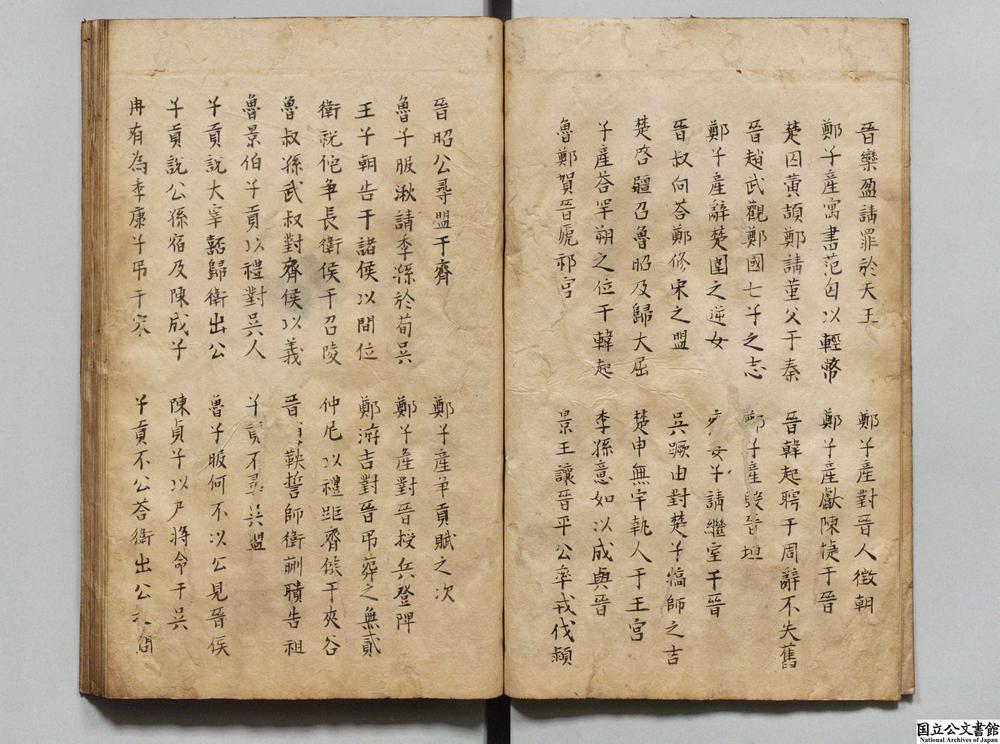 晉欒盈請罪於天王 鄭子產對晉人徵朝
鄭子產寓書范匄以輕幣 鄭子產獻陳捷于晉
楚囚黃頡鄭請堇父于秦 晉韓起聘于周辭不失舊
晉趙武觀鄭國七子之志 子產 晉垣
鄭子產辭楚圍之逆女 子請繼室于晉
晉叔向荅鄭修宋之盟 吳蹶由對楚子犒師之吉
楚啓疆召魯昭及歸大屈 楚申無宇執人于王宮
子產荅罕朔之位于韓起 季孫意如以成與晉
魯鄭賀晉虒祁宮 景王讓晉平公率戎伐潁
晉昭公尋盟于齊 鄭子產爭貢賦之次
魯子服湫請季孫於荀吳 鄭子產對晉授兵登陴
王子朝告于諸侯以間位 鄭游吉對晉弔葬之無貳
衛祝佗爭長衛侯于召陵 仲尼以禮距齊侯于夾谷
魯叔孫武叔對齊侯以義 晉 鞅誓師衛蒯聵告祖
魯景伯子貢以禮對吳人 子貢不尋吳盟
子貢說大宰嚭歸衛出公 魯子服何不以公見晉侯
子貢說公孫宿及陳成子 陳貞子以尸將命于吳
冉有為季康子弔于宋 子貢不公荅衛出公
国立公文書館
National Archives of Japan